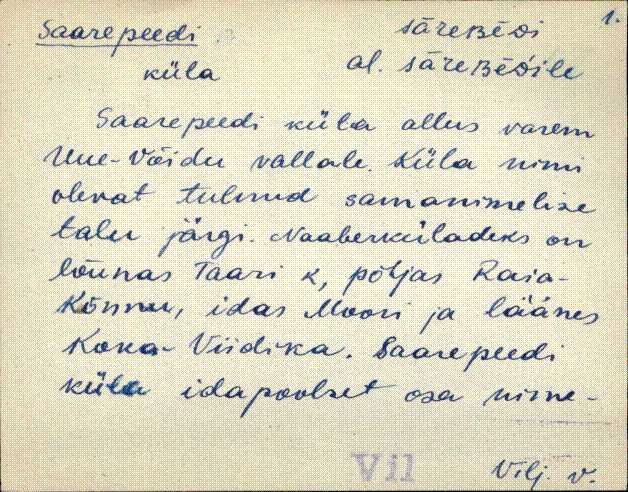 1.
Saarepeedi
sāreBēDi
küla
al. sāreBēD́ile
Saarepeedi küla allus varem
Uue-Võidu vallale. Küla nimi
olevat tulnud samanimelise
talu järgi. Naaberküladeks on
lõunas Taari k, põhjas Raia-
Kõnnu, idas Moori ja läänes
Koka-Viidika. Saarepeedi
küla idapoolset osa nime-
Vil
Vilj. v.